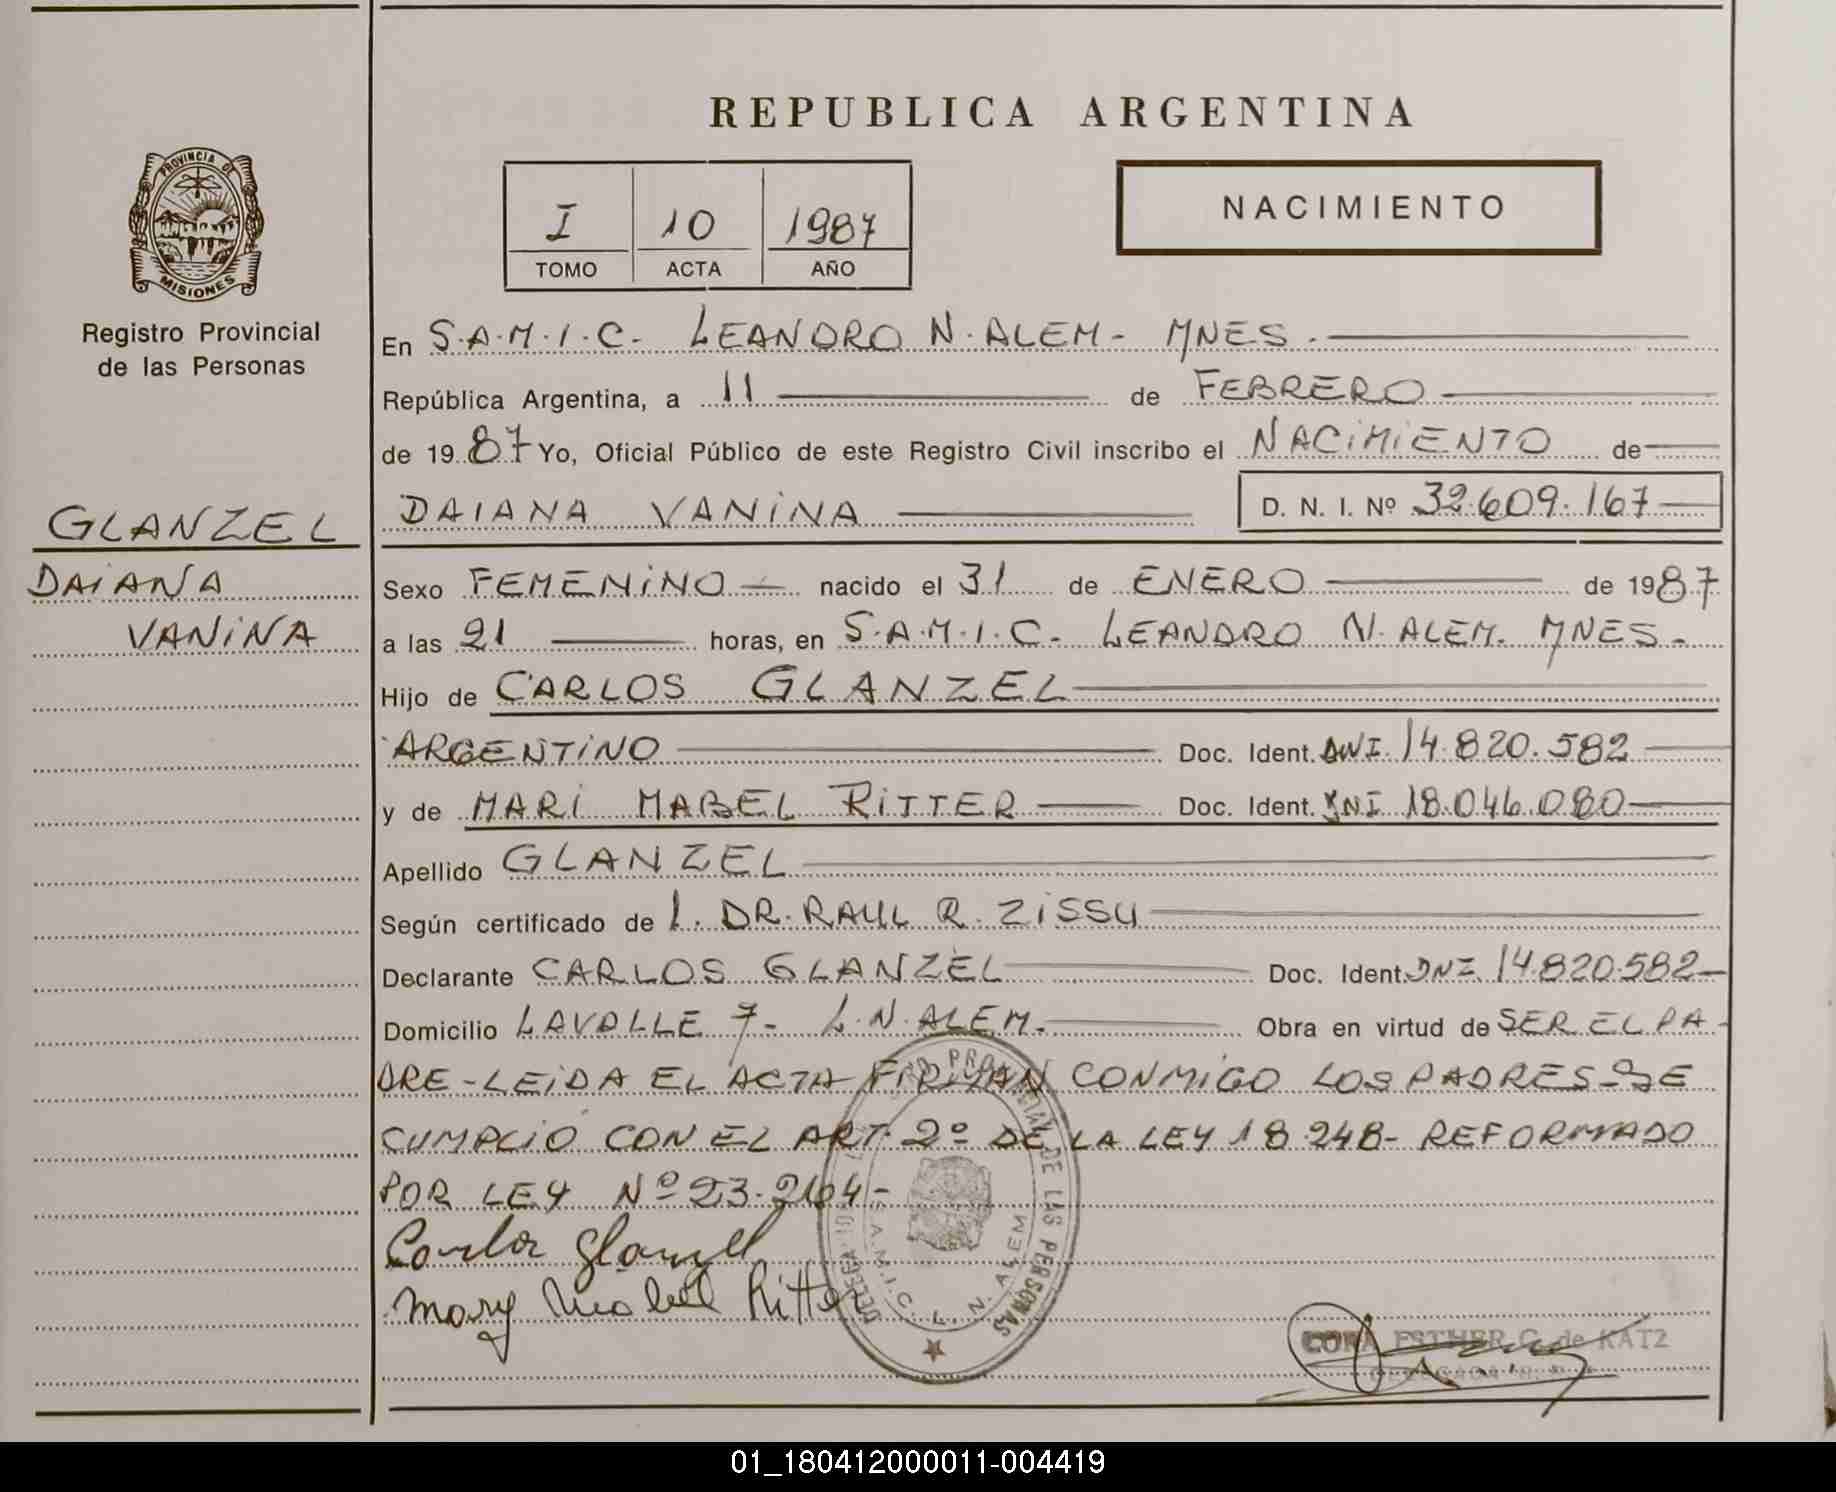 REPUBLICA ARGENTINA
PROVINCIA DE
MISIONES
Registro Provincial
de las Personas
I 10 1987
TOMO ACTA AÑO
NACIMIENTO
En S.A.M.I.C. LEANDRO N. ALEM - MNES.
República Argentina, a 11 de FEBRERO
de 1987 Yo, Oficial Público de este Registro Civil inscribo el NACIMIENTO de
DAIANA VANINA D. N. I. Nº 32.609.167
GLANZEL
DAIANA
VANINA
Sexo FEMENINO nacido el 31 de ENERO de 1987
a las 21 horas, en S.A.M.I.C. LEANDRO N. ALEM. MNES.
Hijo de CARLOS GLANZEL
ARGENTINO Doc. Ident. DNI. 14.820.582
y de MARI MABEL RITTER Doc. Ident. DNI 18.046.080
Apellido GLANZEL
Según certificado de l. DR. RAUL R. ZISSU
Declarante CARLOS GLANZEL Doc. Ident. DNI. 14.820.582
Domicilio LAVALLE 7 - L.N. ALEM. Obra en virtud de SER EL PA-
DRE - LEIDA EL ACTA FIRMAN CONMIGO LOS PADRES - SE
CUMPLIO CON EL ART. 2º DE LA LEY 18.248 - REFORMADO
POR LEY Nº 23.264 -
Carlos Glanzel
Mary Mabel Ritter
DE LAS PERSONAS
S.A.M.I.C. L. N. ALEM
ESTHER C. de KATZ
01_180412000011-004419